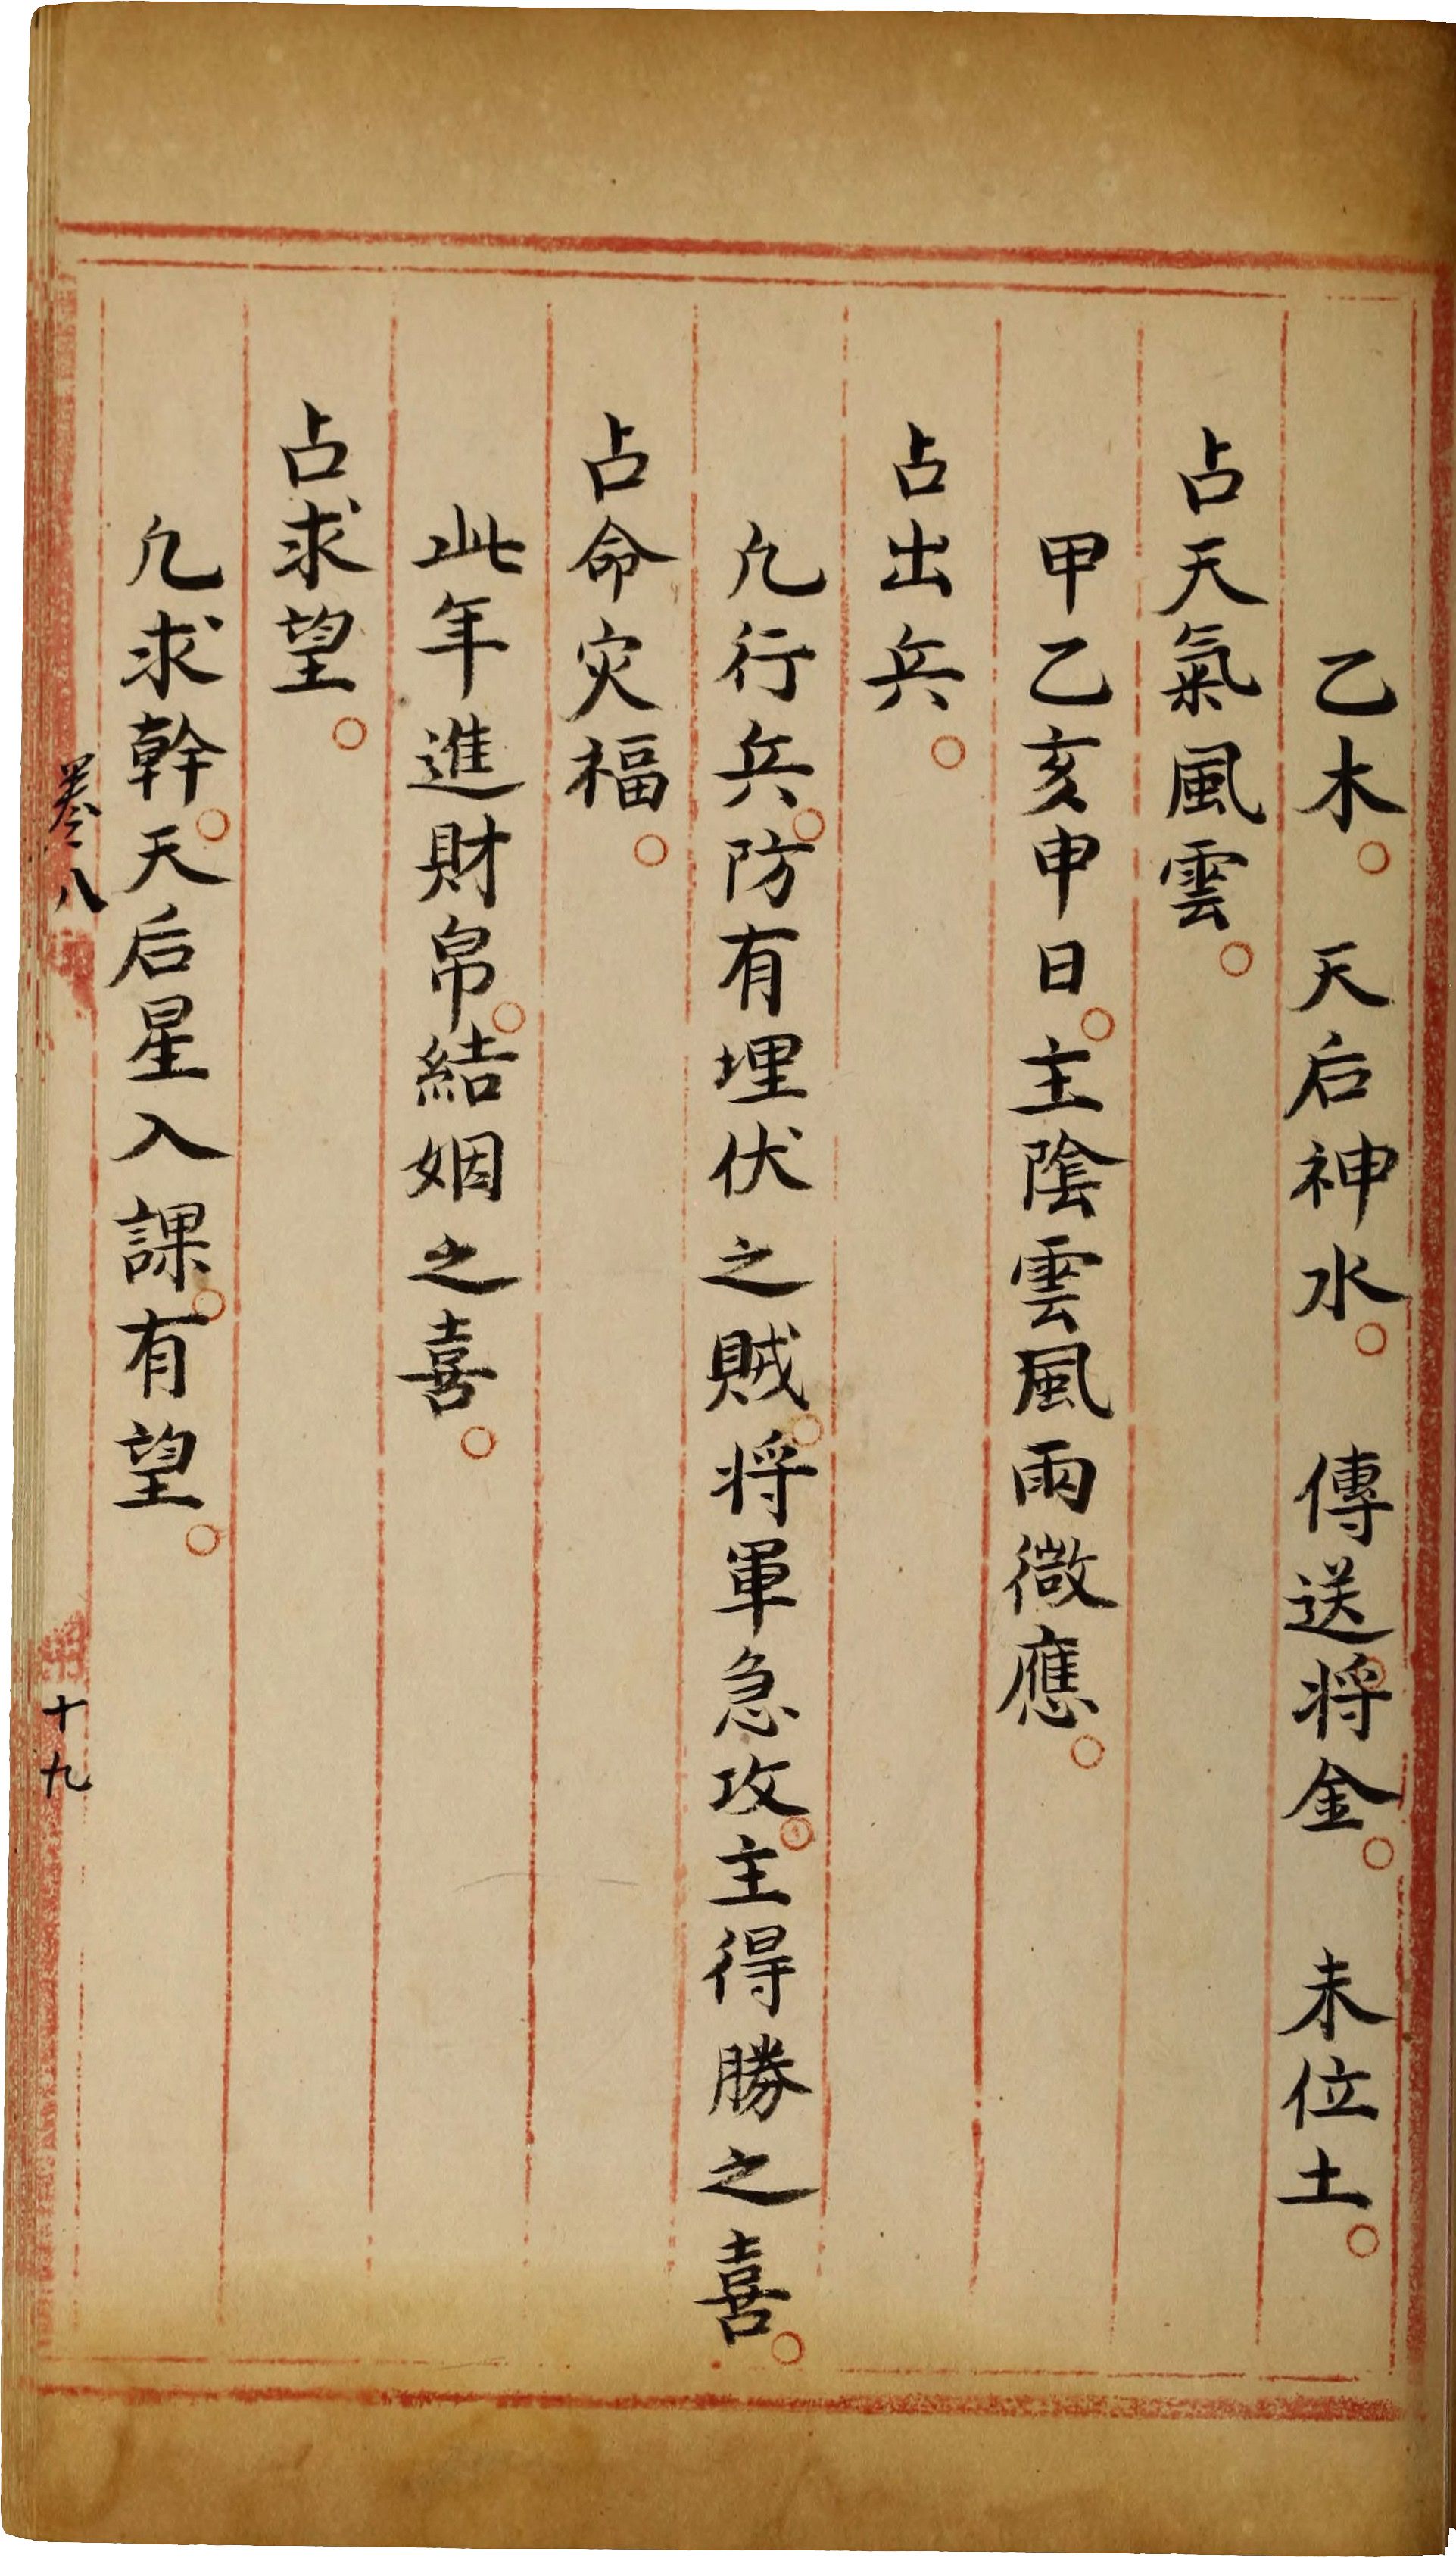 乙木。　天后神水。　傳送将金。　未位土。
占天氣風雲。
甲乙亥申日。主隂雲風雨微應。
占出兵。
凢行兵。防有埋伏之賊。将軍急攻。主得勝之喜。
占命灾福。
此年進財帛。結姻之喜。
占求望。
凢求幹。天后星入課。有望。
卷八
十九